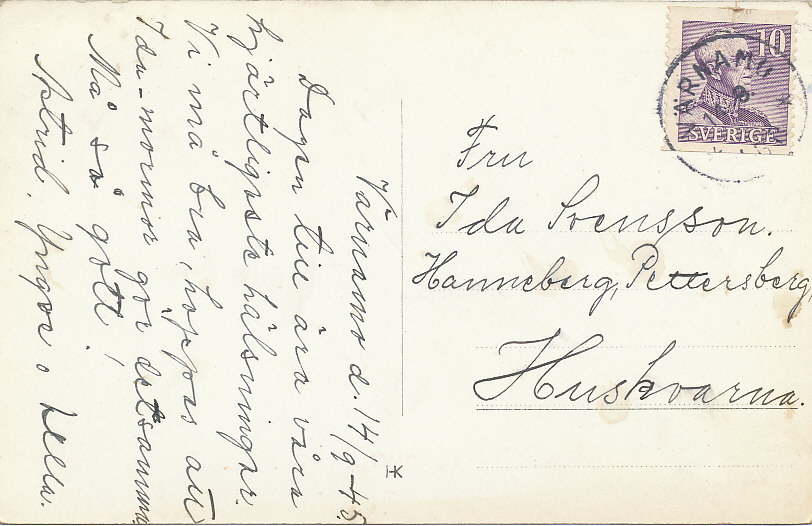 Värnamo d. 14/9-45
Dagen till ära våra
hjärtligaste hälsningar.
Vi må bra, hoppas att
Ida-mormor gör detsamma.
Må så gott!
Astrid, Yngve o Lella.
10
SVERIGE
VÄRNAMO
Fru
Ida Svensson.
Hanneberg, Pettersberg
Huskvarna.